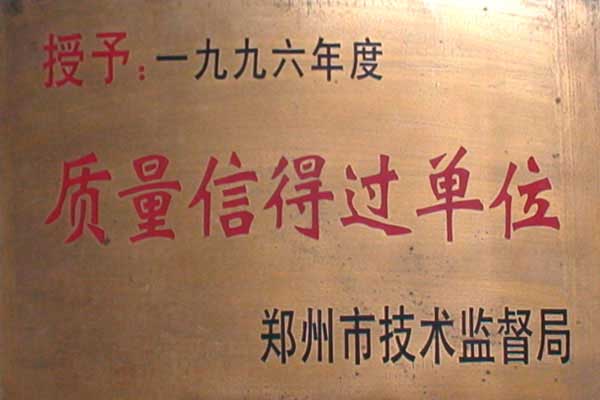 授予：一九九六年度
质量信得过单位
郑州市技术监督局